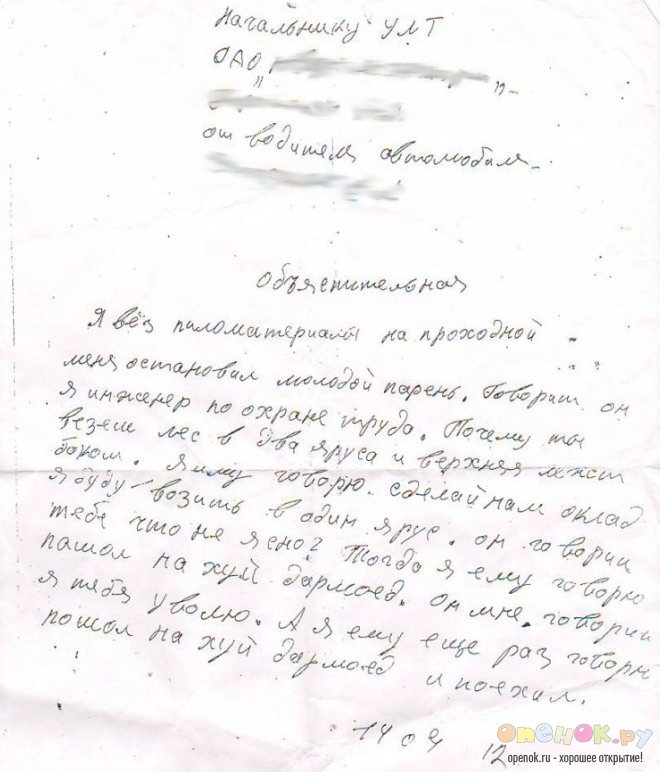 Начальнику УМТ
ОАО "
"-
от водителя автомобиля-
Объястительная
Я вёз пиломатериалы на проходной
меня остановил молодой парень. Говорит он
я инженер по охране труда. Почему ты
везеш лес в два яруса и верхняя лежит
боком. Я иму говорю. сделай нам оклад
я буду возить в один ярус. он говорит
тебе что не ясно? Тогда я ему говорю
пашол на хуй дармоед. он мне говорит
я тебя уволю. А я ему еще раз говорю
пошол на хуй дармоед и поехал.
14 04 12
опенок.ру
openok.ru - хорошее открытие!